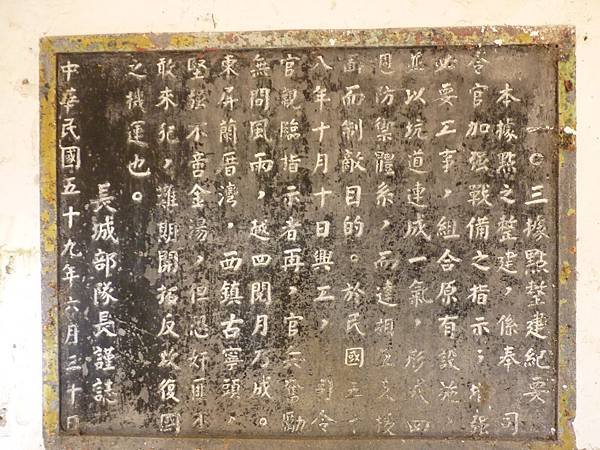 一〇三據點整建紀要
本據點之整建，係奉　司
令官加强戰備之指示；增强
必要工事，組合原有設施，
並以坑道連成一氣，形成四
週防禦體系，而達相互支援
而制敵目的。於民國五十
八年十月十日興工，　司令
官親臨指示者再，官兵奮勵
無間風雨，越四閱月乃成。
東屏蘭厝灣，西鎮古寧頭，
堅强不啻金湯，但恐奸匪不
敢來犯，難期開拓反攻復國
之機運也。
長城部隊長謹誌
中華民國五十九年六月三十日